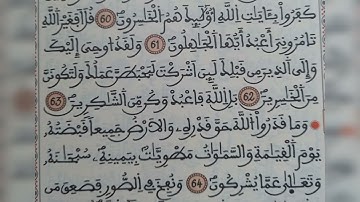 كَفَرُواْ بِـَٔايَٰتِ اِ۬للَّهِ أُوْلَٰٓئِكَ هُمُ اُ۬لْخَٰسِرُونَ 60 قُلَ اَفَغَيْرَ
تَامُرُونِيَ أَعْبُدُ أَيُّهَا اَ۬لْجَٰهِلُونَ 61 وَلَقَدُ ا۟وحِيَ إِلَيْكَ
وَإِلَى اَ۬لذِينَ مِن قَبْلِكَ لَئِنَ اَشْرَكْتَ لَيَحْبَطَنَّ عَمَلُكَ وَلَتَكُونَنَّ
مِنَ اَ۬لْخَٰسِرِينَ 62 بَلِ اِ۬للَّهَ فَاعْبُدْ وَكُن مِّنَ اَ۬لشَّٰكِرِينَ 63
وَمَا قَدَرُواْ اُ۬للَّهَ حَقَّ قَدْرِهِۦ وَالَارْضُ جَمِيعاً قَبْضَتُهُۥ
يَوْمَ اَ۬لْقِيَٰمَةِ وَالسَّمَٰوَٰتُ مَطْوِيَّٰتٌۢ بِيَمِينِهِۦ سُبْحَٰنَهُۥ
وَتَعَٰلَىٰ عَمَّا يُشْرِكُونَ 64 وَنُفِخَ فِي اِ۬لصُّورِ فَصَعِقَ مَن